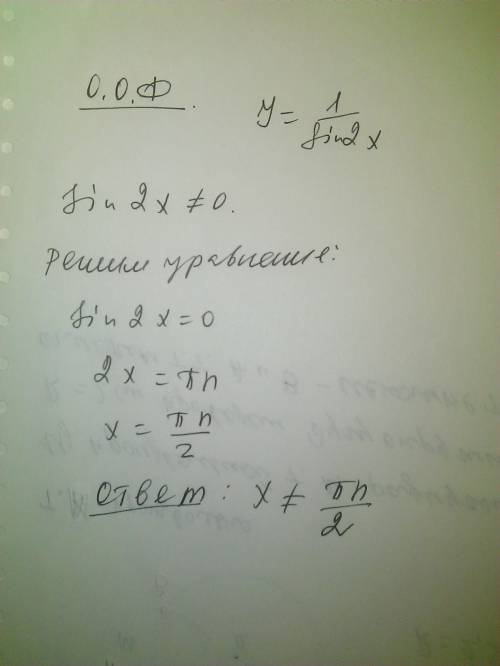 О.О.Ф.
y = 1/sin2x
sin 2x ≠ 0.
Решим уравнение:
sin 2x = 0
2x = πn
x = πn/2
Ответ: x ≠ πn/2